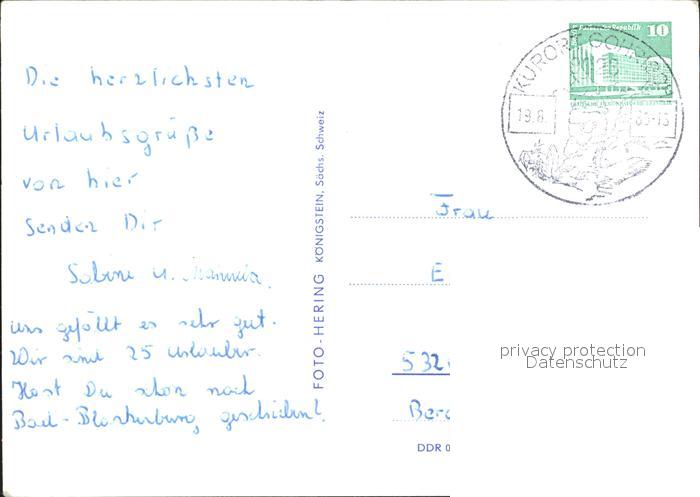 Die herzlichsten
Urlaubsgrüße
von hier
Senden Dir
Sabine u.
uns gefällt es sehr gut.
Wir sind 25 Urlauber.
Hast Du schon nach
Bad-Blankenburg geschrieben?
FOTO-HERING KÖNIGSTEIN, Sächs. Schweiz
10
KURORT GOHRISCH
19.8. 83-13
Frau
E
532
Ber
DDR 0
privacy protection
Datenschutz